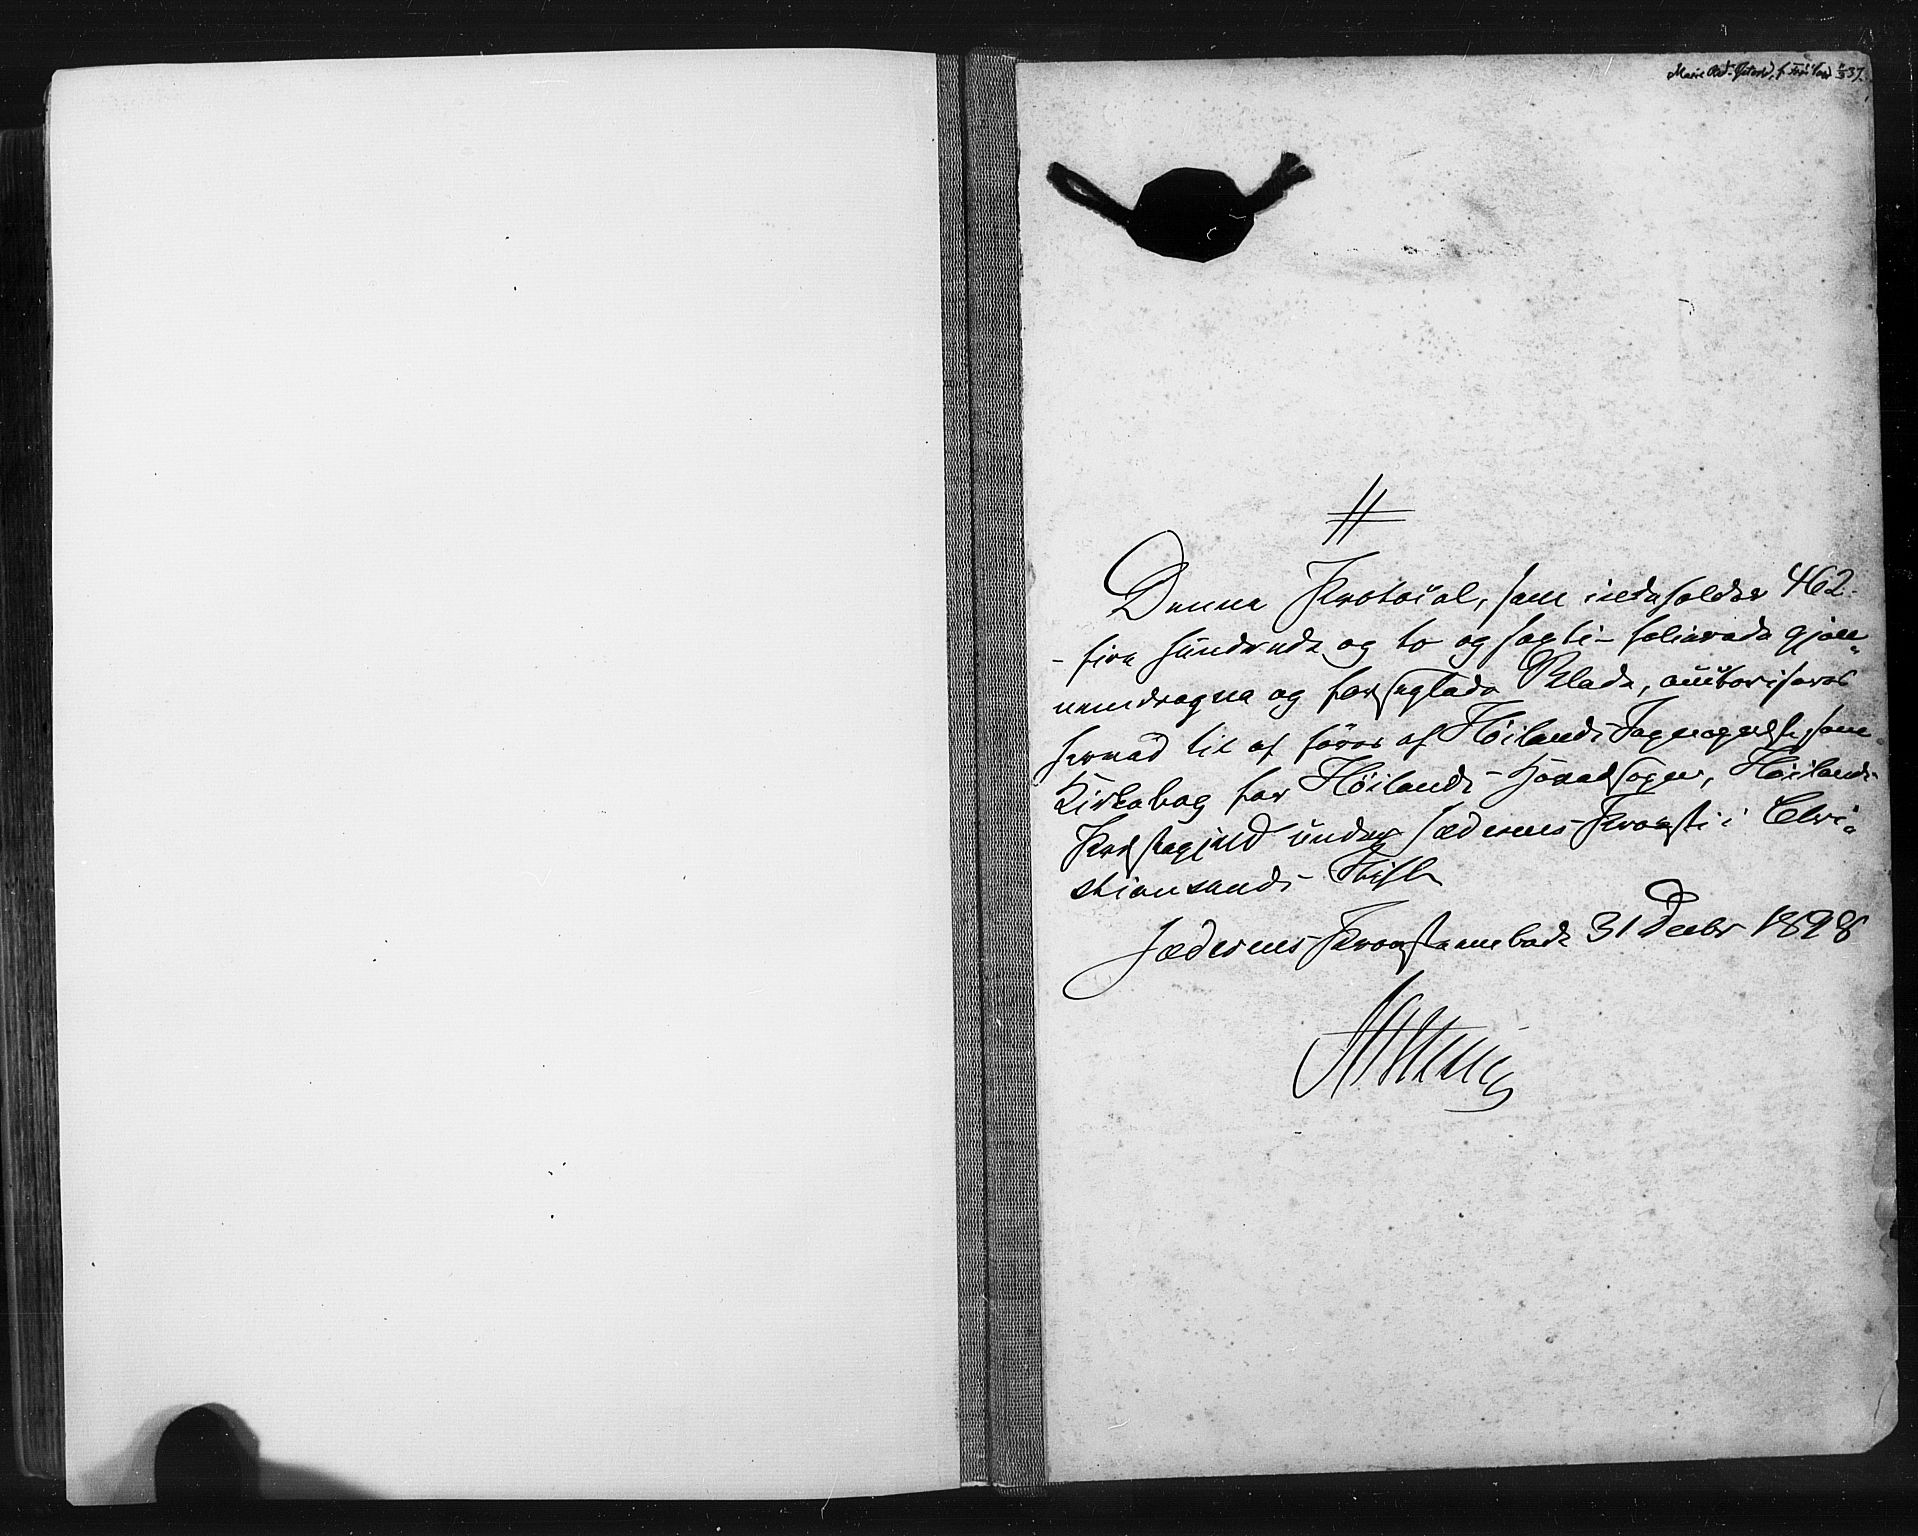 Denne Protocol, som indeholder 462
- fire hundrede og to og sexti - folierede gjen„
nemdragne og forseglede Blade, authoriseres
herved til at føres af Høilands Sognepræst som
Kirkebog for Høilands Hovedsogn, Høilands
Præstegjeld under Jæderens Provsti i Chri„
stiansands Stift
Jæderens Provstembede 31 Decbr 1898